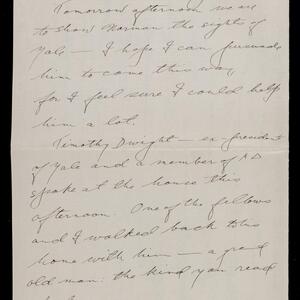 Tomorrow afternoon we are
to show Norman the sights of
Yale – I hope I can persuade
him to come this way,
for I feel sure I could help
him a lot.
Timothy Dwight – ex-president
of Yale and a member of A.D.
spoke at the house this
afternoon. One of the fellows
and I walked back to his
home with him – a grand
old man: the kind you read